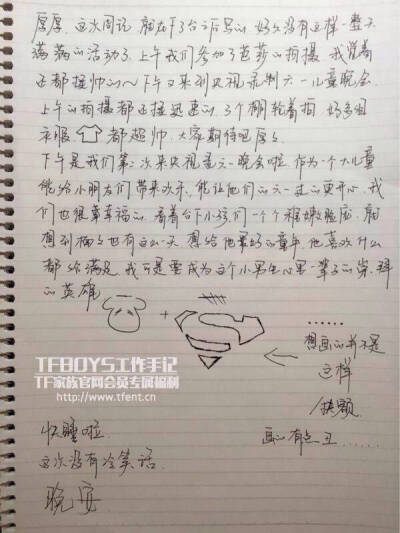 厚厚，这次周记，就在下了台之后写的，好久没有这样一整天
满满的活动了，上午我们参加了芭莎的拍摄，我觉着
还都挺帅的～下午又来到央视录制六一儿童晚会
上午的拍摄都还挺迅速的，3个棚轮着拍，好多组
衣服都超帅，大家期待吧厚厚
下午是我们第二次来央视六一晚会啦，作为一个大儿童
能给小朋友们带来欢乐，能让他们的六一过的更开心，我
们也很幸福的，看着台下小孩们一个个稚嫩脸庞，就
想到楠楠也有这么一天，想给他最好的童年，他喜欢什么
都给满足，我可是要成为这个小男生心里一辈子的崇拜
的英雄
+
S
……
想画的并不是
这样
画的有点丑……
TFBOYS工作手记
TF家族官网会员专属福利
http://www.tfent.cn
快睡啦
这次没有冷笑话
晚安